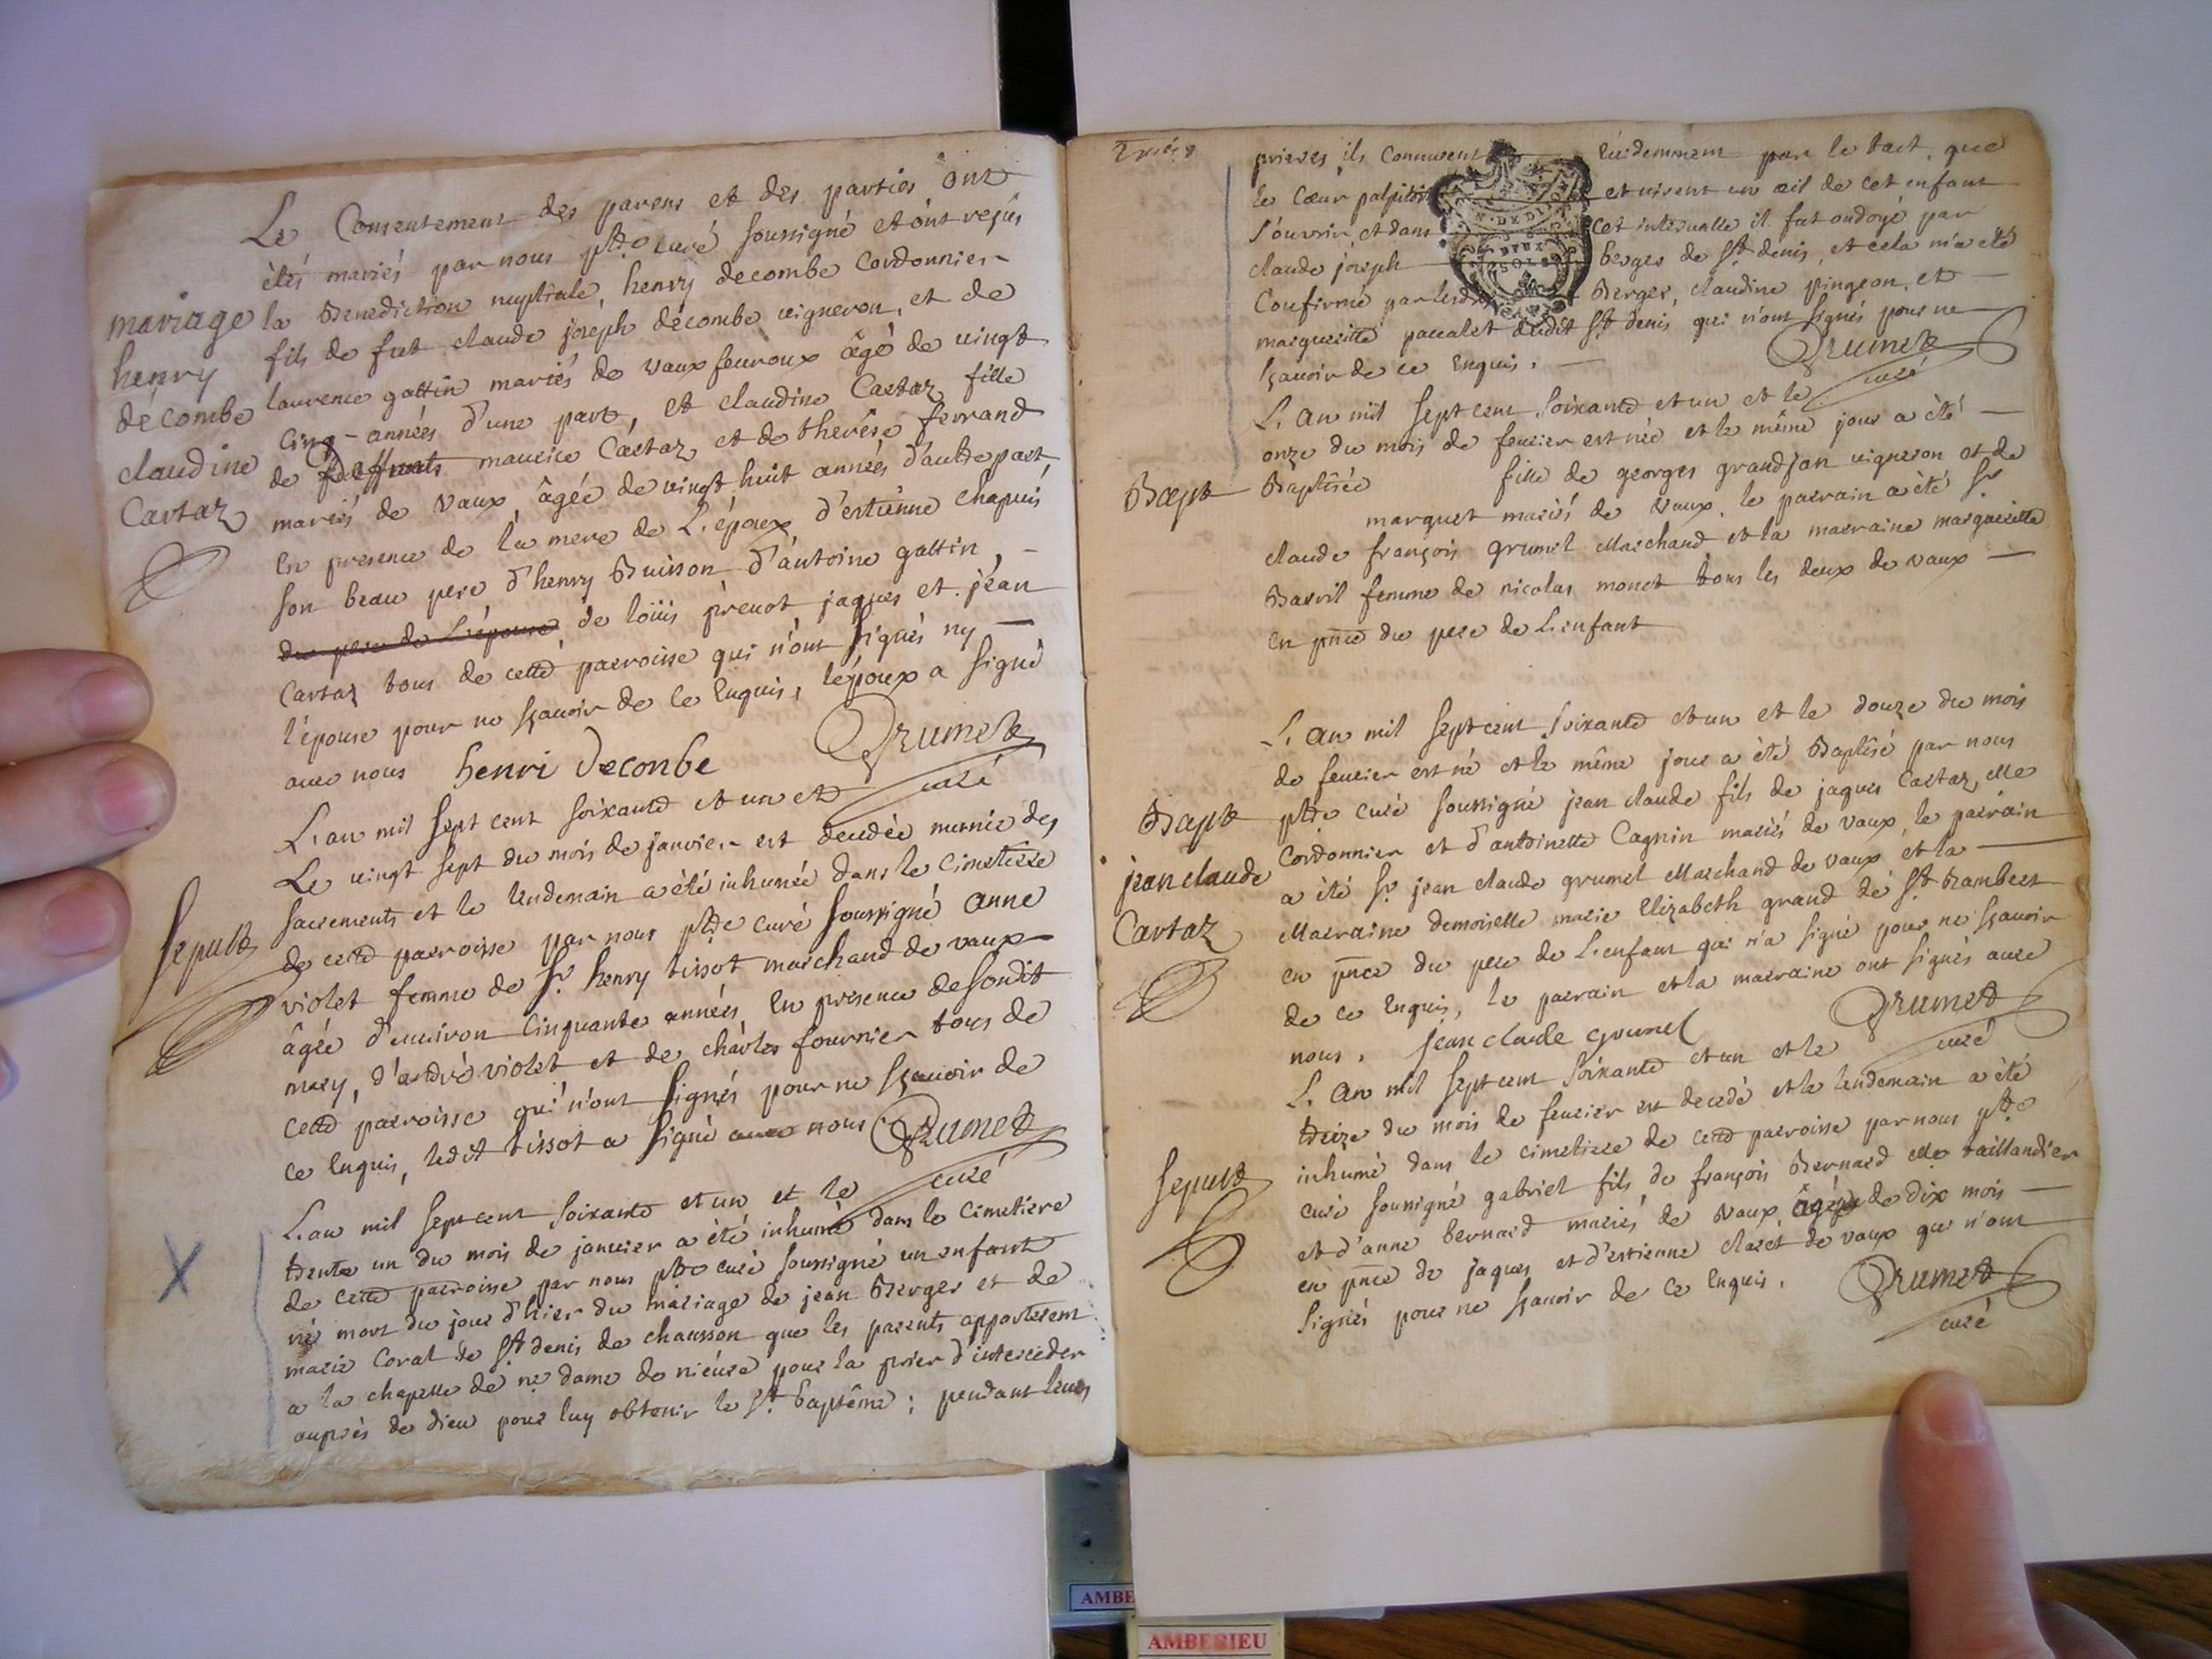 Le Consentement des parens et des parties ont
étés mariés par nous ptre curé soussigné et ont reçus
la Benediction nuptiale, henry decombe cordonnier
fils de fut claude joseph décombe vigneron, et de
laurence gattin mariés de vaux fevroux âgé de vingt
cinq années d'une part, et claudine Cartaz fille
de deffunts maurice Cartaz et de therêse ferrand
mariés de vaux, âgée de vingt huit années d'autre part,
en presence de la mere de L'époux d'estienne chapuis
son beau pere d'henry Buisson d'antoine gattin,
du pere de L'épouse, de loüis prevot jaques et jean
Cartaz tous de cette parroisse qui n'ont signés ny
l'épouse pour ne sçavoir de ce enquis, l'époux a signé
avec nous henri deconbe Grumet
curé
mariage
henry
décombe
claudine
Cartaz
L'an mil sept cent soixante et un et
Le vingt sept du mois de janvier est decedée munie des
sacrements et le lendemain a été inhumée dans le cimetiere
de cette parroisse par nous ptre curé soussigné anne
violet femme de Sr. henry tissot marchand de vaux
âgée d'environ cinquante années, en presence de sondit
mary, d'andré violet et de charles fournier tous de
cette parroisse qui n'ont signés pour ne sçavoir de
ce enquis, ledit tissot a signé avec nous Grumet
curé
sepult
L'an mil sept cent soixante et un et le
trente un du mois de janvier a été inhumé dans le cimetiere
de cette parroisse par nous ptre curé soussigné un enfant
né mort du jour d'hier du mariage de jean Berger et de
marie Coral de St denis de chausson que les parents apporterent
a la chapelle de ne. dame de nieure pour la prier d'interceder
auprès de dieu pour luy obtenir le St. baptême ; pendant leurs
X
prieres ils connurent évidemment par le tact, que
le cœur palpitoit et virent un œil de cet enfant
s'ouvrir, et dans cet intervalle il fut ondoyé par
claude joseph berger de St denis, et cela m'a été
confirmé par Berger, claudine pingeon, et
margueritte pacalet dudit St denis qui n'ont signés pour ne
sçavoir de ce enquis. Grumet
curé
L'an mil sept cent soixante et un et le
onze du mois de fevrier est née et le même jour a été
Baptisée fille de georges grandjan vigneron et de
marguet mariés de vaux, le parrain a été Sr
claude françois grumel Marchand et la marraine marguerite
Barril femme de nicolas monet tous les deux de vaux
en pnce du pere de L'enfant
Bapt
L'an mil sept cent soixante et un et le douze du mois
de fevrier est né et le même jour a été Baptisé par nous
ptre curé soussigné jean claude fils de jaques Cartaz, Me
cordonnier et d'antoinette Cagnin mariés de vaux, le parrain
a été Sr. jean claude grumel Marchand de vaux et la
Marraine demoiselle marie Elizabeth grand de St Rambert
en pnce du pere de L'enfant qui n'a signé pour ne sçavoir
de ce enquis, le parrain et la marraine ont signés avec
nous. jean claude grumel Grumet
curé
Bapt
jean claude
Cartaz
L'an mil sept cent soixante et un et le
treize du mois de fevrier est decedé et le lendemain a été
inhumé dans le cimetiere de cette parroisse par nous ptre
curé soussigné gabriel fils de françois Bernard Me taillandier
et d'anne bernard mariés de vaux, âgé de dix mois
en pnce de jaques et d'estienne claret de vaux qui n'ont
signés pour ne sçavoir de ce enquis. Grumet
curé
sepult
N.DEDI
DEUX
SOLS
AMBE
AMBERIEU